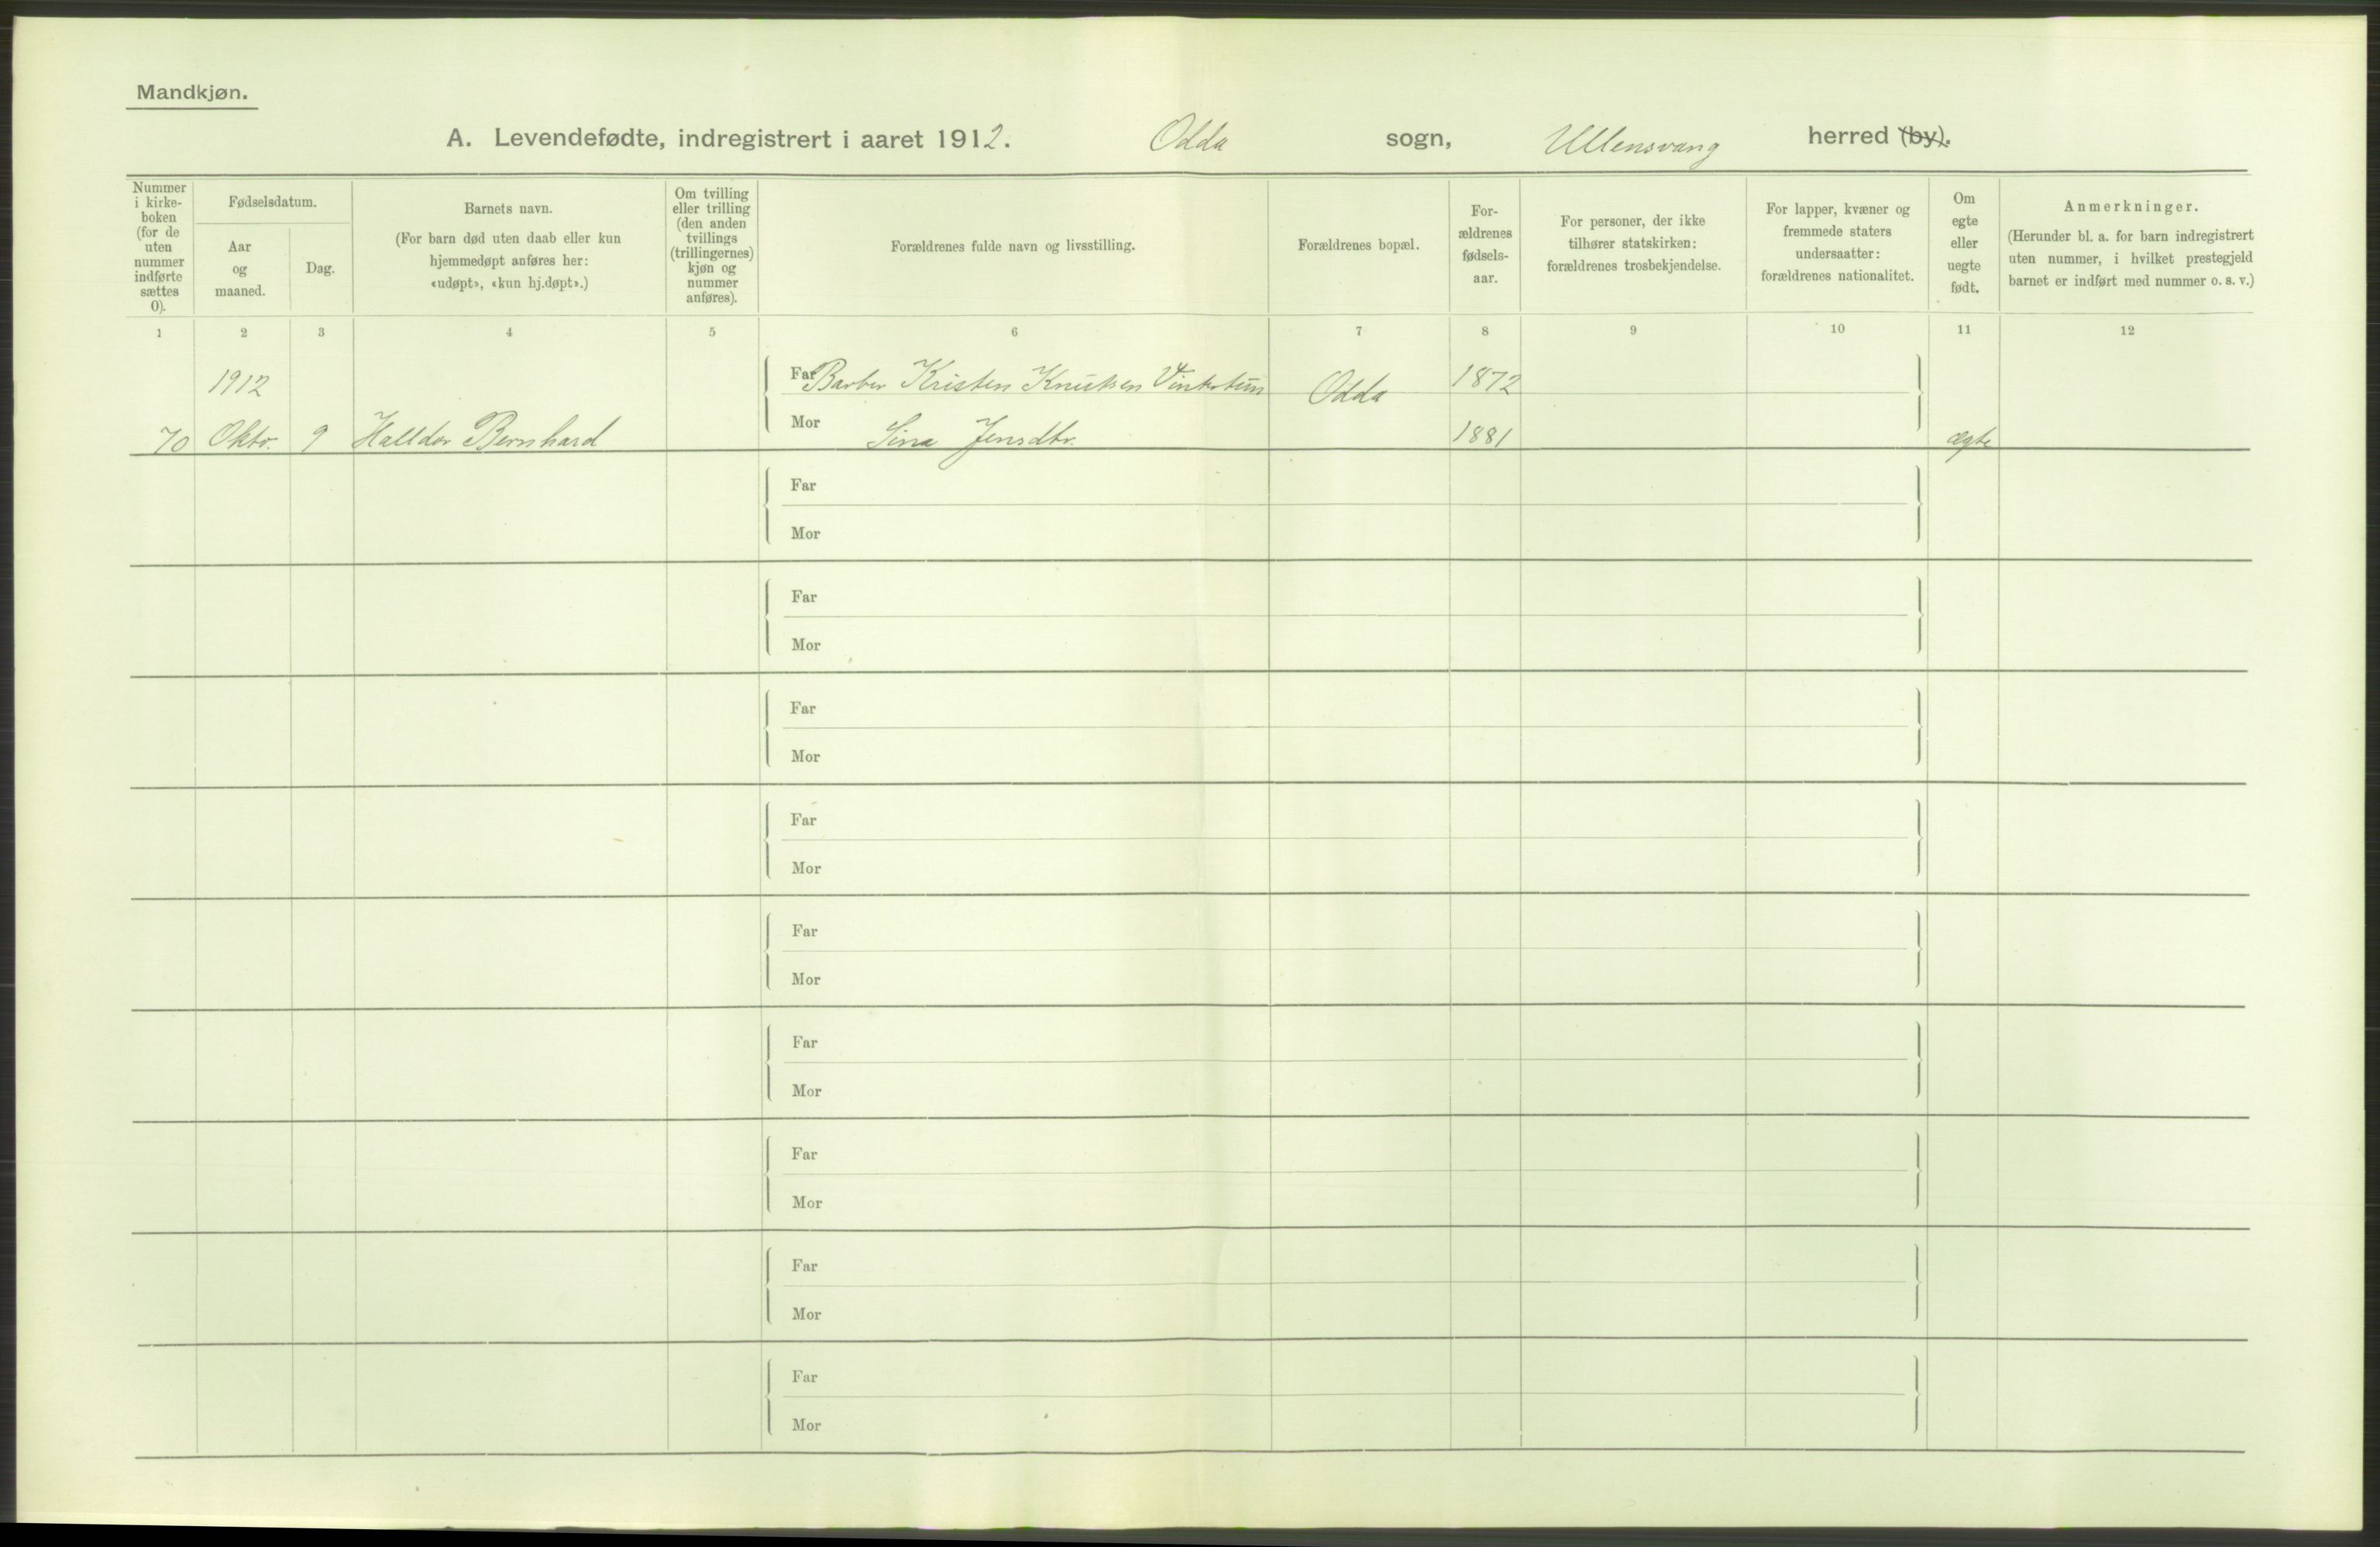 Mandkjøn.
A. Levendefødte, indregistrert i aaret 1912. Odda sogn, Ullensvang herred (by).
Nummer i kirke-boken (for de uten nummer indførte sættes 0).
Fødselsdatum.
Aar og maaned.
Dag.
Barnets navn.
(For barn død uten daab eller kun hjemmedøpt anføres her: «udøpt», «kun hj.døpt».)
Om tvilling eller trilling (den anden tvillings (trillingernes) kjøn og nummer anføres).
Forældrenes fulde navn og livsstilling.
Forældrenes bopæl.
For-ældrenes fødsels-aar.
For personer, der ikke tilhører statskirken: forældrenes trosbekjendelse.
For lapper, kvæner og fremmede staters undersaatter: forældrenes nationalitet.
Om egte eller uegte født.
Anmerkninger.
(Herunder bl. a. for barn indregistrert uten nummer, i hvilket prestegjeld barnet er indført med nummer o. s. v.)
1 2 3 4 5 6 7 8 9 10 11 12
1912 Far Barber Kristen Knutsen Odda 1872
70 Oktr. 9 Halldor Bernhard Mor Sina Jensdtr. 1881 ægte
Far
Mor
Far
Mor
Far
Mor
Far
Mor
Far
Mor
Far
Mor
Far
Mor
Far
Mor
Far
Mor